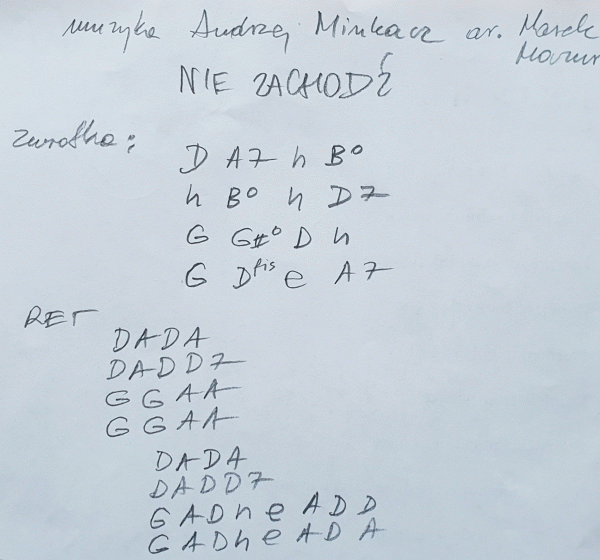 muzyka Andrzej Minkacz ar. Marek
Mazur
NIE ZACHODŹ
Zwrotka:
D A7 h B°
h B° h D7
G G#° D h
G Dfis e A7
REF
DADA
DADD7
GGAA
GGAA
DADA
DADD7
GADheADD
GADheADA